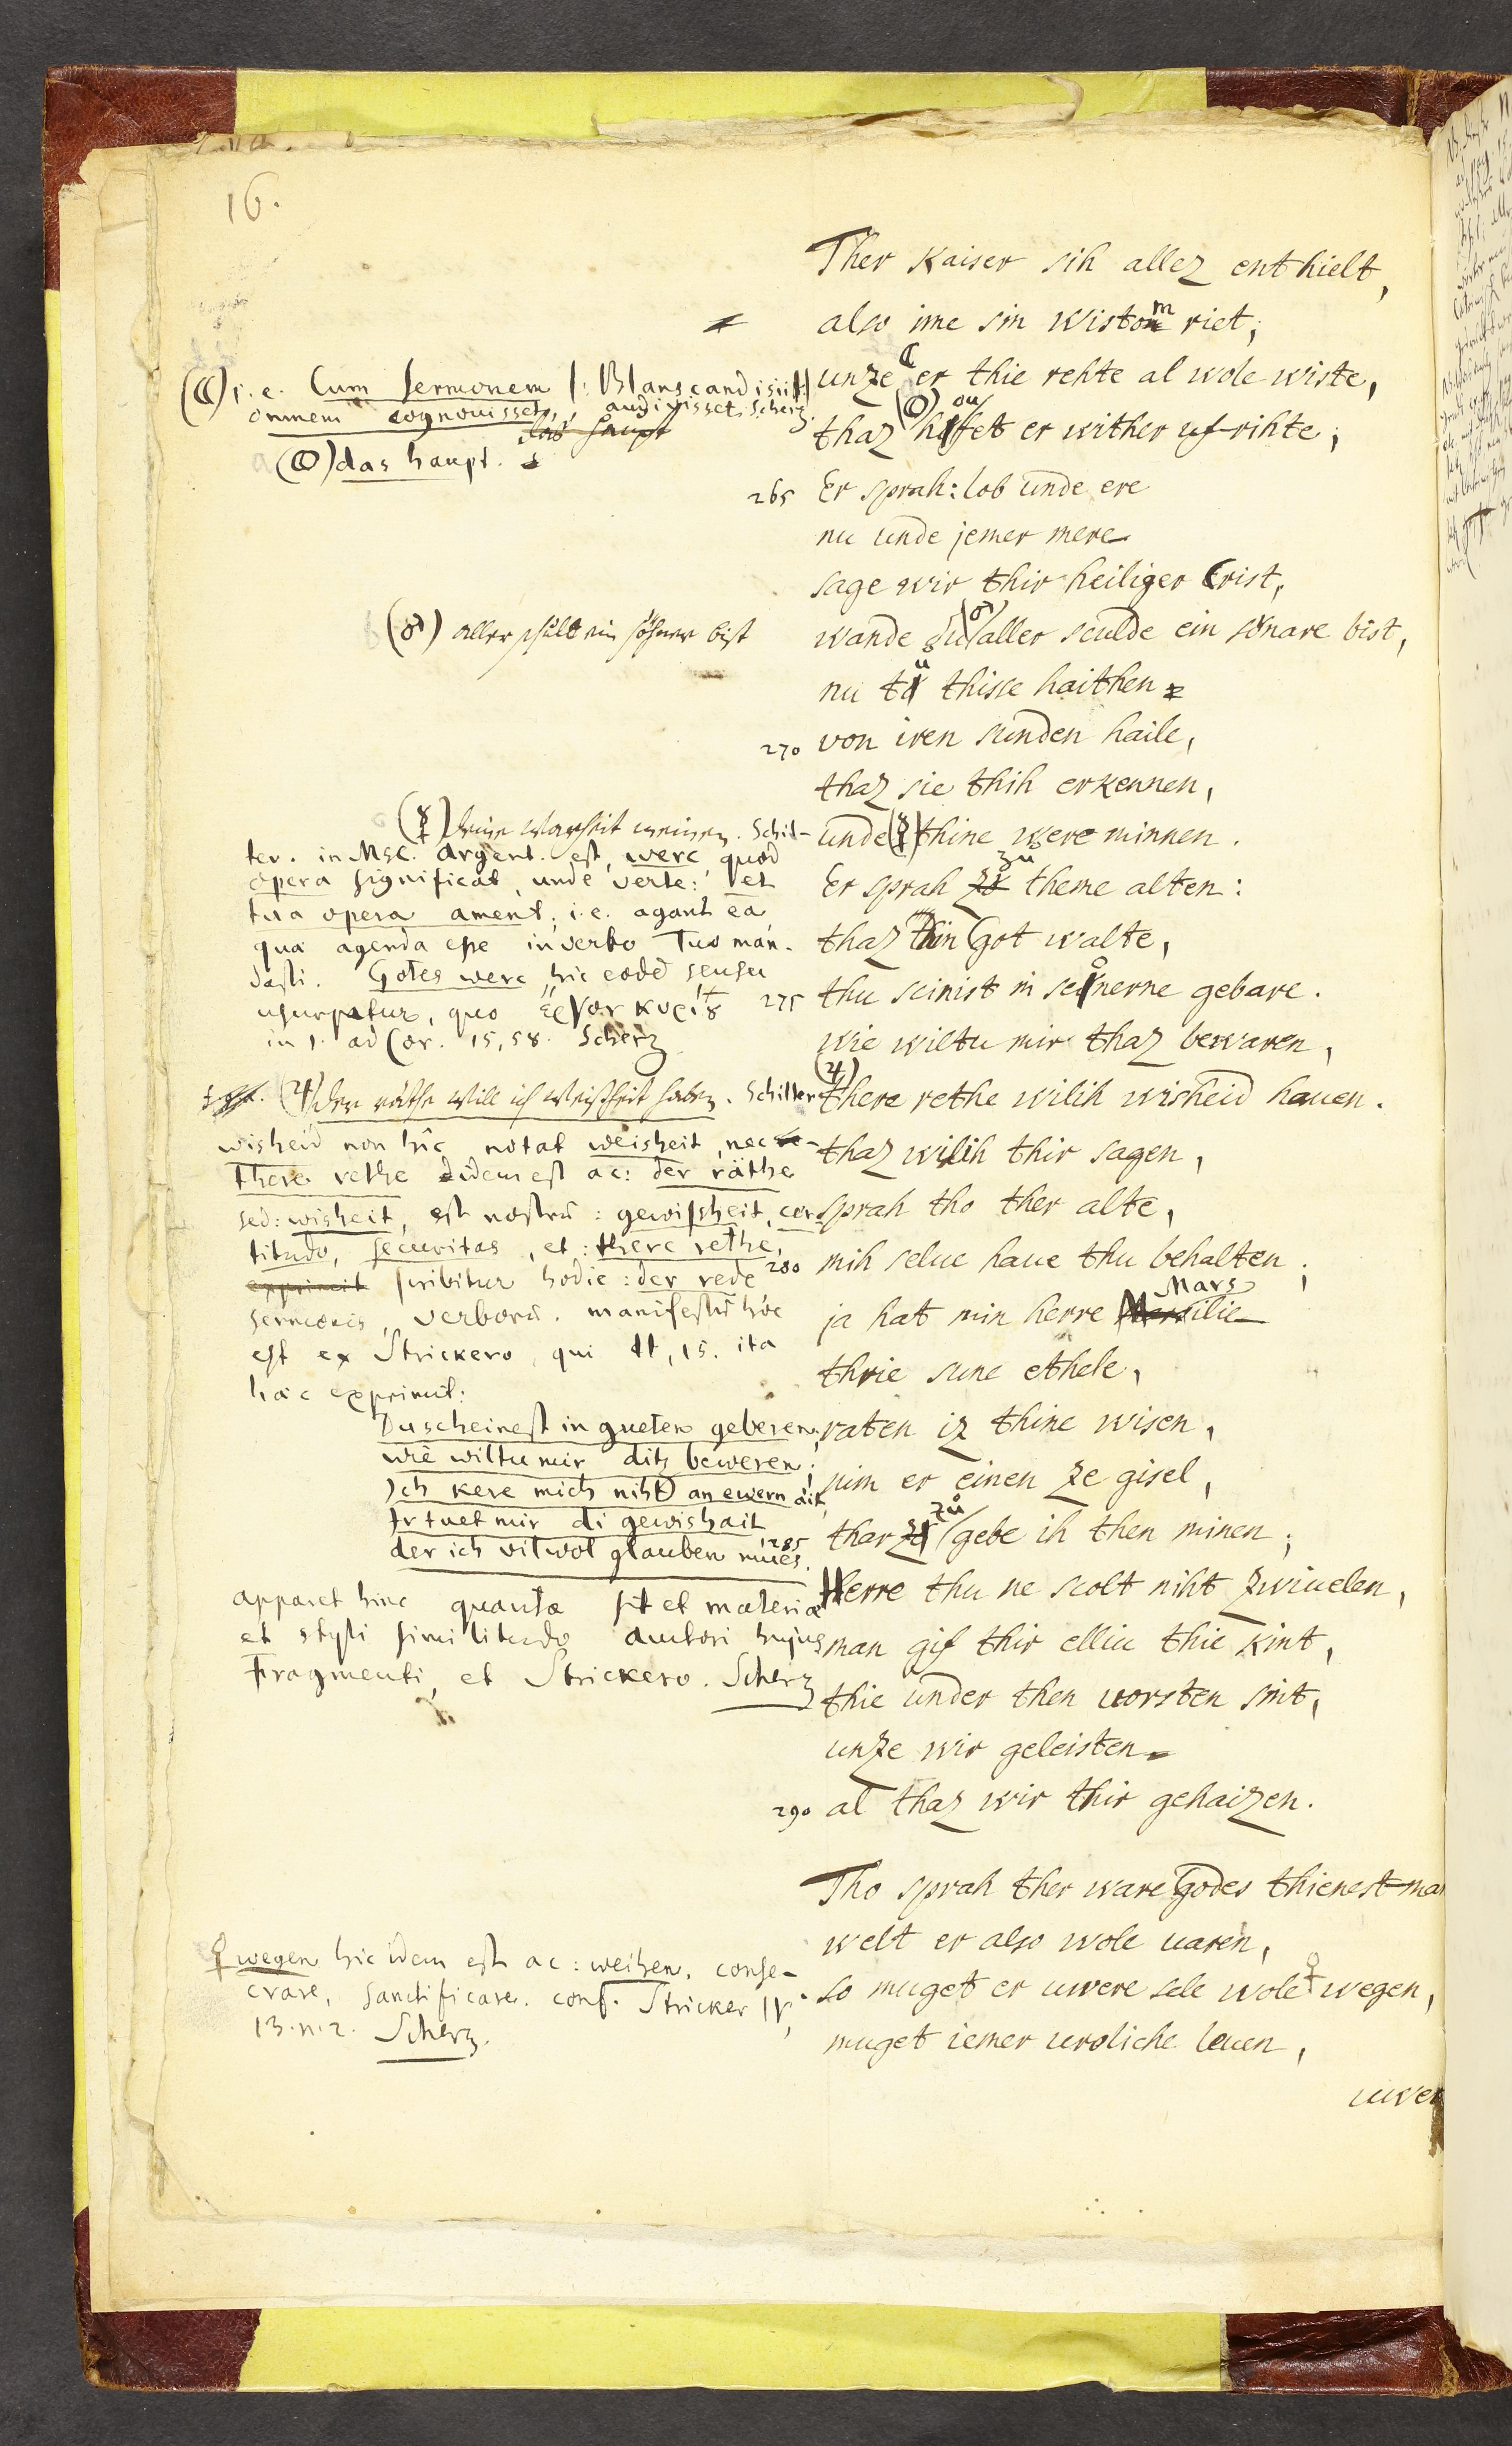 16.
Ther Kaiser sih allez enthielt,
also ime sin wistom riet;
unze ☾ er thie rehte al wole wiste,
thaz (☉) houfet er wither uf-rihte;
265 Er sprah: lob unde ere
nu unde jemer mere
sage wir thir heiliger Crist,
wande du (♂) aller sculde ein sonare bist,
nu tu thisse haithen
270 von iren sunden haile,
thaz sie thih erkennen,
unde (☿) thine were minnen.
Er sprah zu theme alten:
thaz thin Got walte,
275 thu scinist in sconerne gebare.
wie wiltu mir thaz bewaren,
(♃) there rethe wilih wisheid hauen.
thaz wilih thir sagen,
sprah tho ther alte,
280 mih selue haue thu behalten;
ja hat min herre Marsilie
thrie sune ethele,
raten iz thine wisen,
nim er einen ze gisel,
285 thar zů gebe ih then minen;
Herre thu ne scolt niht zwiuelen,
man gif thir elliu thie kint,
thie under then vorsten sint,
unze wir geleisten
290 al thaz wir thir gehaizen.
Tho sprah ther ware Godes thienest-ma
welt er also wole uaren,
so muget er uwere sele wole ♀ wegen,
muget iemer uroliche leuen,
uwer
(☾) i. e. Cum sermonem |: Blanscandisii :|
omnem cognouisset, audivisset. Scherz.
das haupt
(☉) das haupt.
(♂) aller schult ein söhner bist
(☿) deine warheit meinen. Schil-
ter. in Msc. Argent. est, werc quod
opera significat, unde verte: et
tua opera ament, i.e. agant ea
qua agenda esse in verbo Tuo man-
dasti. Gotes werc hic eodē sensu
usurpatur, quo ἔργον κυρίȣ
in 1. ad Cor. 15, 58. Scherz
(♃) der räthe will ich weißheit haben. Schilter
wisheid non hîc notat weisheit, nec
there rethe idem est ac: der räthe
sed: wisheit, est nostrū: gewißheit, cer-
titudo, securitas, et: there rethe,
exprimit scribitur hodie: der rede
sermonis, verborū. manifestū hoc
est ex Strickero, qui II, 15. ita
hæc exprimit:
Du scheinest in gueten geberen,
wie wiltu mir ditz beweren;
Ich kere mich niht an ewern ait,
Ir tuet mir di gewishait
der ich vil wol glauben mües.
apparet hinc quanta sit et materiæ
et styli similitudo autori hujus
Fragmenti, et Strickero. Scherz
♀ wegen hic idem est ac: weihen, conse-
crare, sanctificare. conf. Stricker IV,
13. n. 2. Scherz.